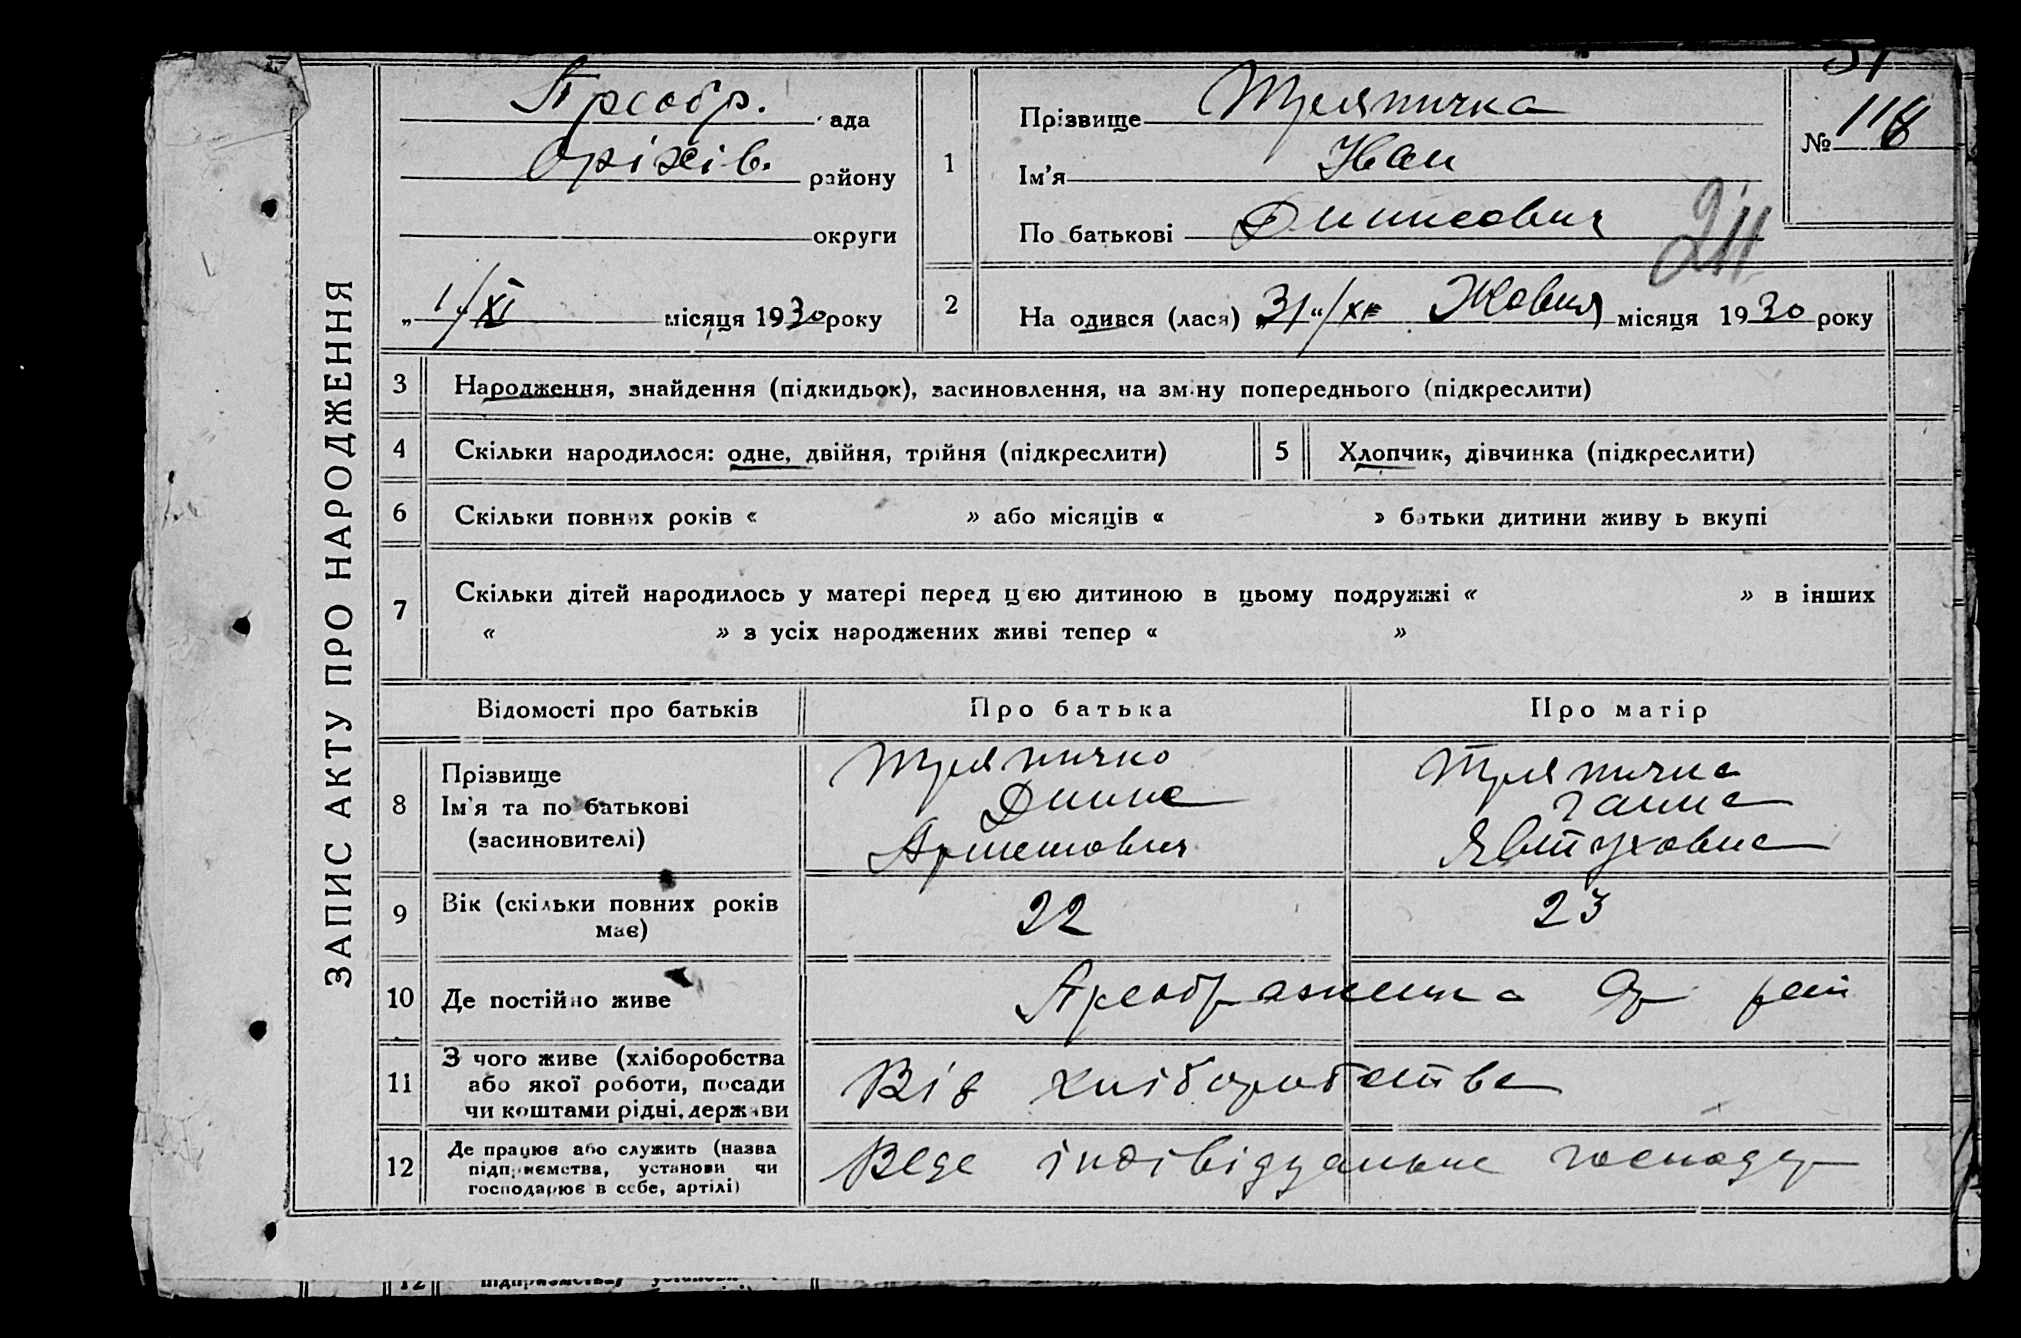 ЗАПИС АКТУ ПРО НАРОДЖЕННЯ
Преобр. ада
Оріхів. району
округи
1/XI місяця 1930 року
1 Прізвище Тряпичка
Ім'я Иван
По батькові Динисович
№ 116
2 На одився (лася) „31“/ Жовня місяця 1930 року
3 Народження, знайдення (підкидьок), засиновлення, на зміну попереднього (підкреслити)
4 Скільки народилося: одне, двійня, трійня (підкреслити) 5 Хлопчик, дівчинка (підкреслити)
6 Скільки повних років « » або місяців « » батьки дитини живу ь вкупі
7 Скільки дітей народилось у матері перед цією дитиною в цьому подружжі « » в інших
« » з усіх народжених живі тепер « »
Відомості про батьків Про батька Про матір
8 Прізвище
Ім'я та по батькові
(засиновителі)
Тряпичко
Динис
Тряпичка
Ганна
Явтуховна
9 Вік (скільки повних років
має)
22 23
10 Де постійно живе Преображенка Ор рай
11 З чого живе (хліборобства
або якої роботи, посади
чи коштами рідні, держави
Від хліборобства
12 Де працює або служить (назва
підприємства, установи чи
господарює в себе, артілі)
Веде індівідуальне господар